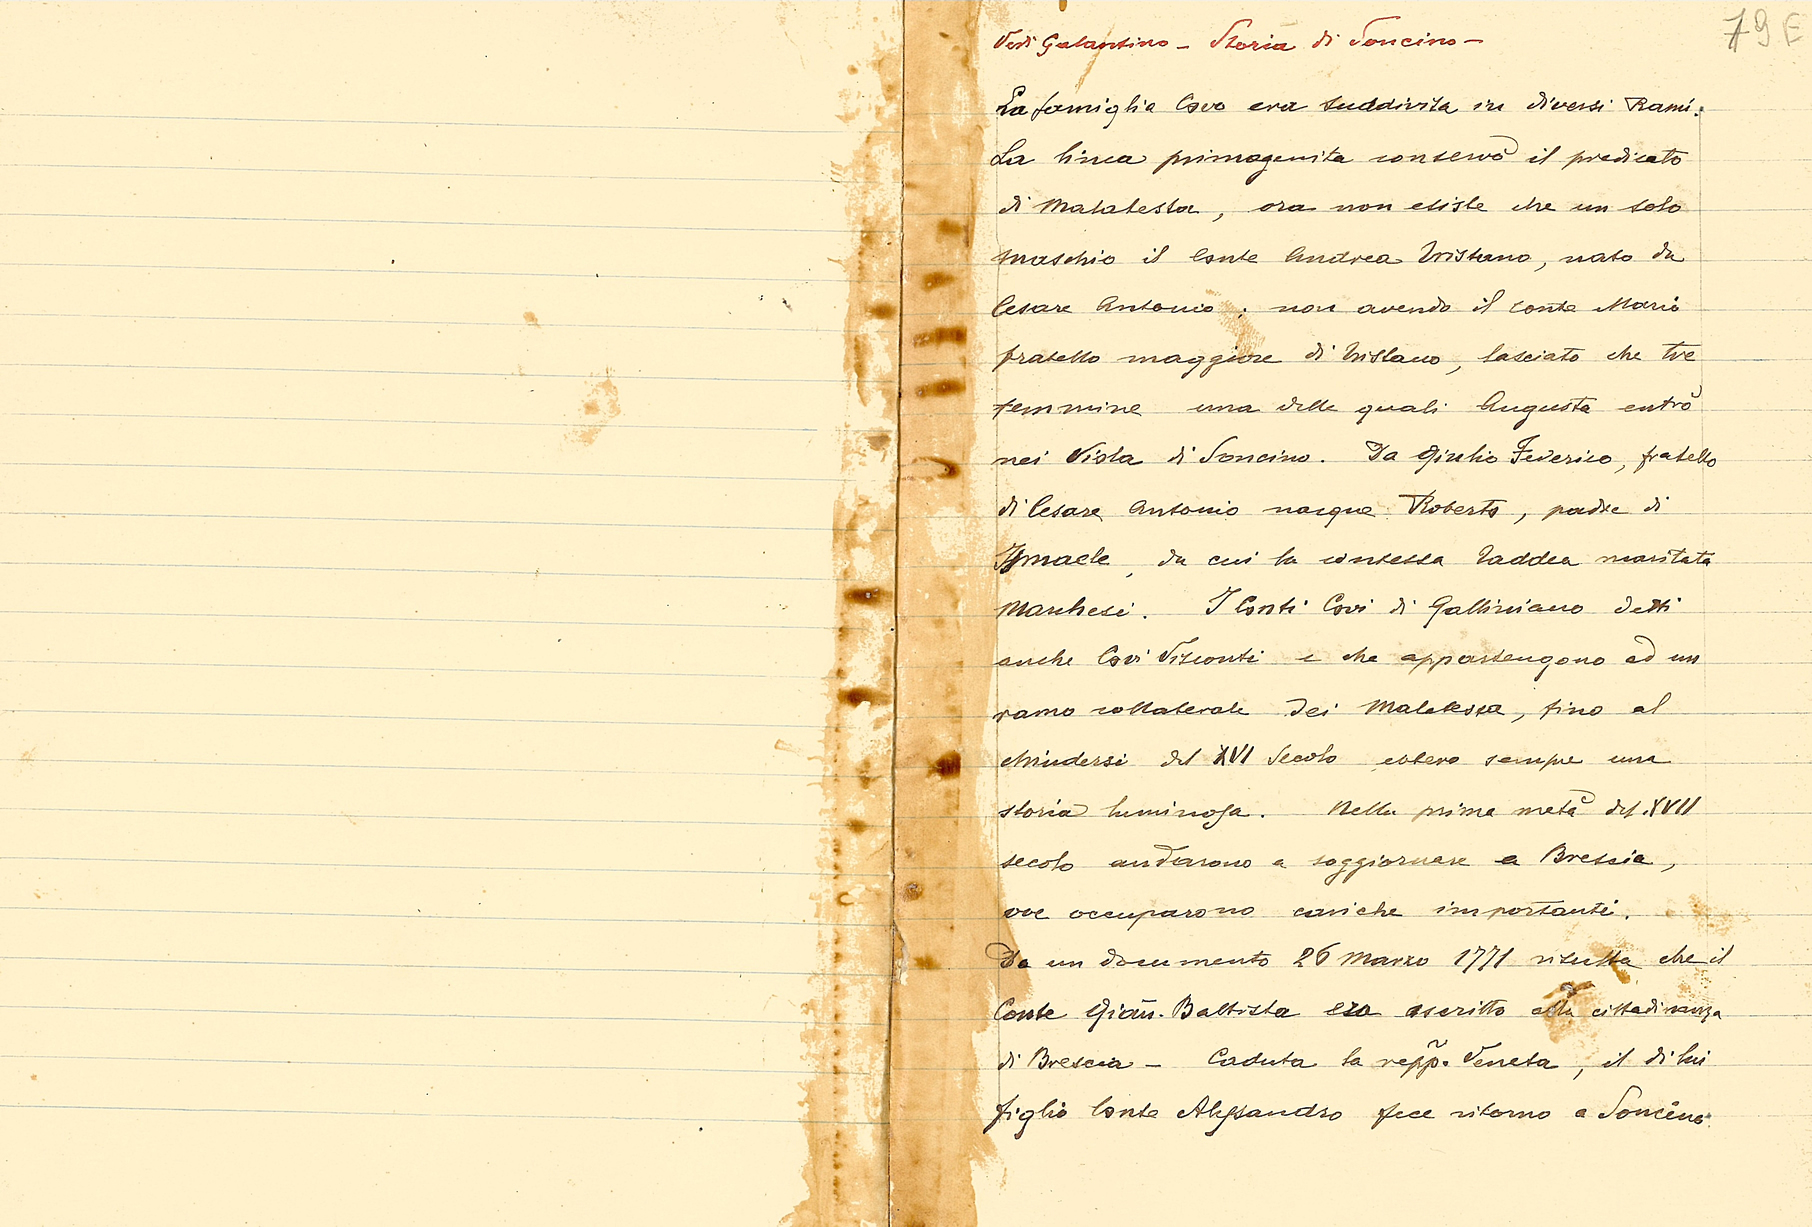 79 E
Vedi Galantino - Storia di Soncino -
La famiglia Covo era suddivisa in diversi Rami:
La linea primogenita conservò il predicato
di Malatesta, ora non esiste che un solo
maschio il Conte Andrea Tristano, nato da
Cesare Antonio; non avendo il conte Mario
fratello maggiore di Tristano, lasciato che tre
femmine una delle quali Augusta entrò
nei Viola di Soncino. Da Giulio Federico, fratello
di Cesare Antonio nacque Roberto, padre di
Ismaele, da cui la contessa Taddea maritata
Marchesi. I Conti Covi di Gallignano detti
anche Covi Visconti e che appartengono ad un
ramo collaterale dei Malatesta, fino al
chiudersi del XVI secolo ebbero sempre una
storia luminosa. Nella prima metà del XVII
secolo andarono a soggiornare a Brescia,
ove occuparono cariche importanti.
Da un documento 26 Marzo 1771 risulta che il
Conte Gian. Battista era ascritto alla cittadinanza
di Brescia - Caduta la repp. Veneta, il di lui
figlio Conte Alessandro fece ritorno a Soncino.